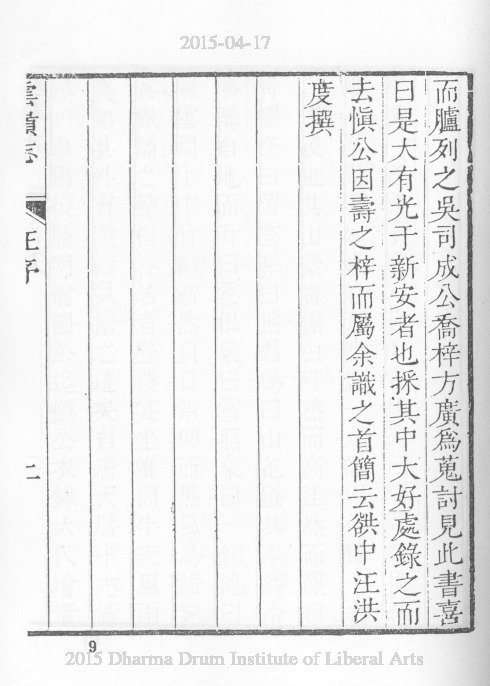 2015-04-17
而臚列之吳司成公喬梓方廣爲蒐討見此書喜
曰是大有光于新安者也採其中大好處錄之而
去愼公因壽之梓而屬余識之首簡云谼中汪洪
度撰
雲嶺志
汪序
二
9
2015 Dharma Drum Institute of Liberal Arts